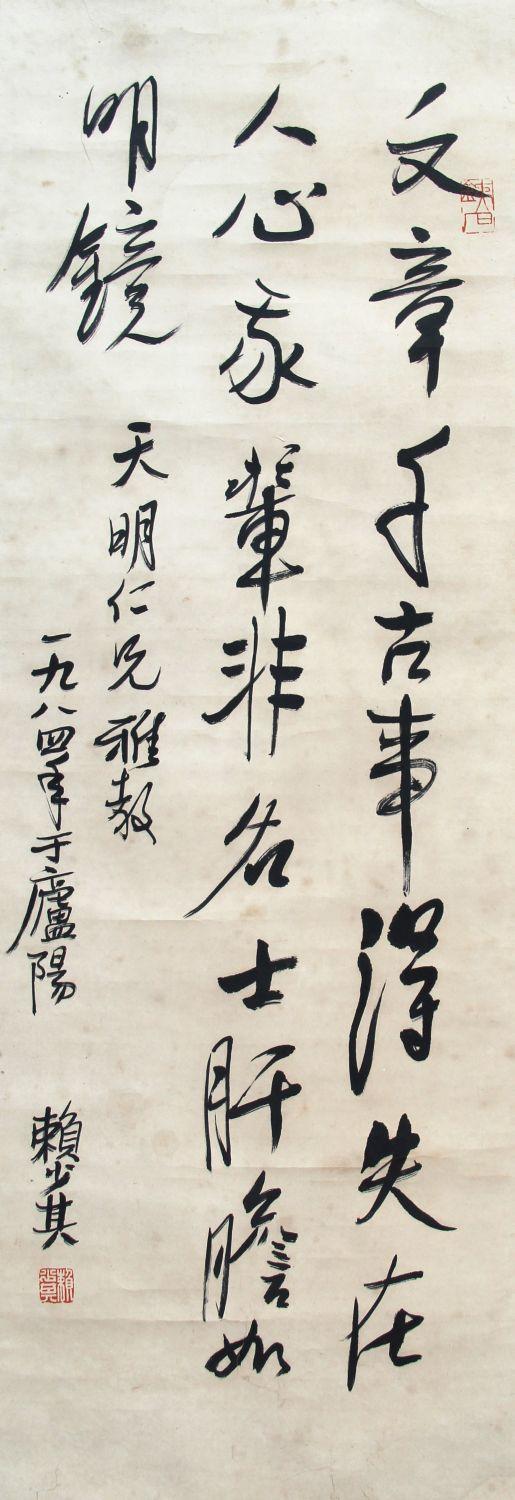 文章千古事得失在
人心我輩非名士肝膽如
明鏡
天明仁兄雅教
一九八四年于廬陽
賴少其